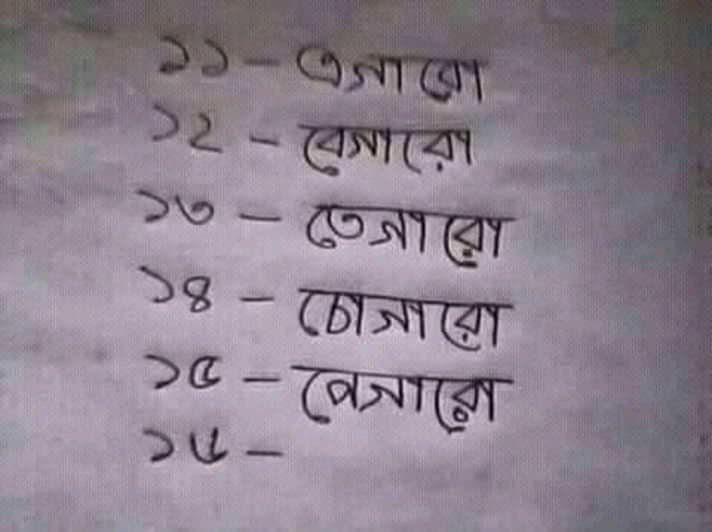 ১১ - এগারো
১২ - বেগারো
১৩ - তেগারো
১৪ - চোগারো
১৫ - পেগারো
১৬ -